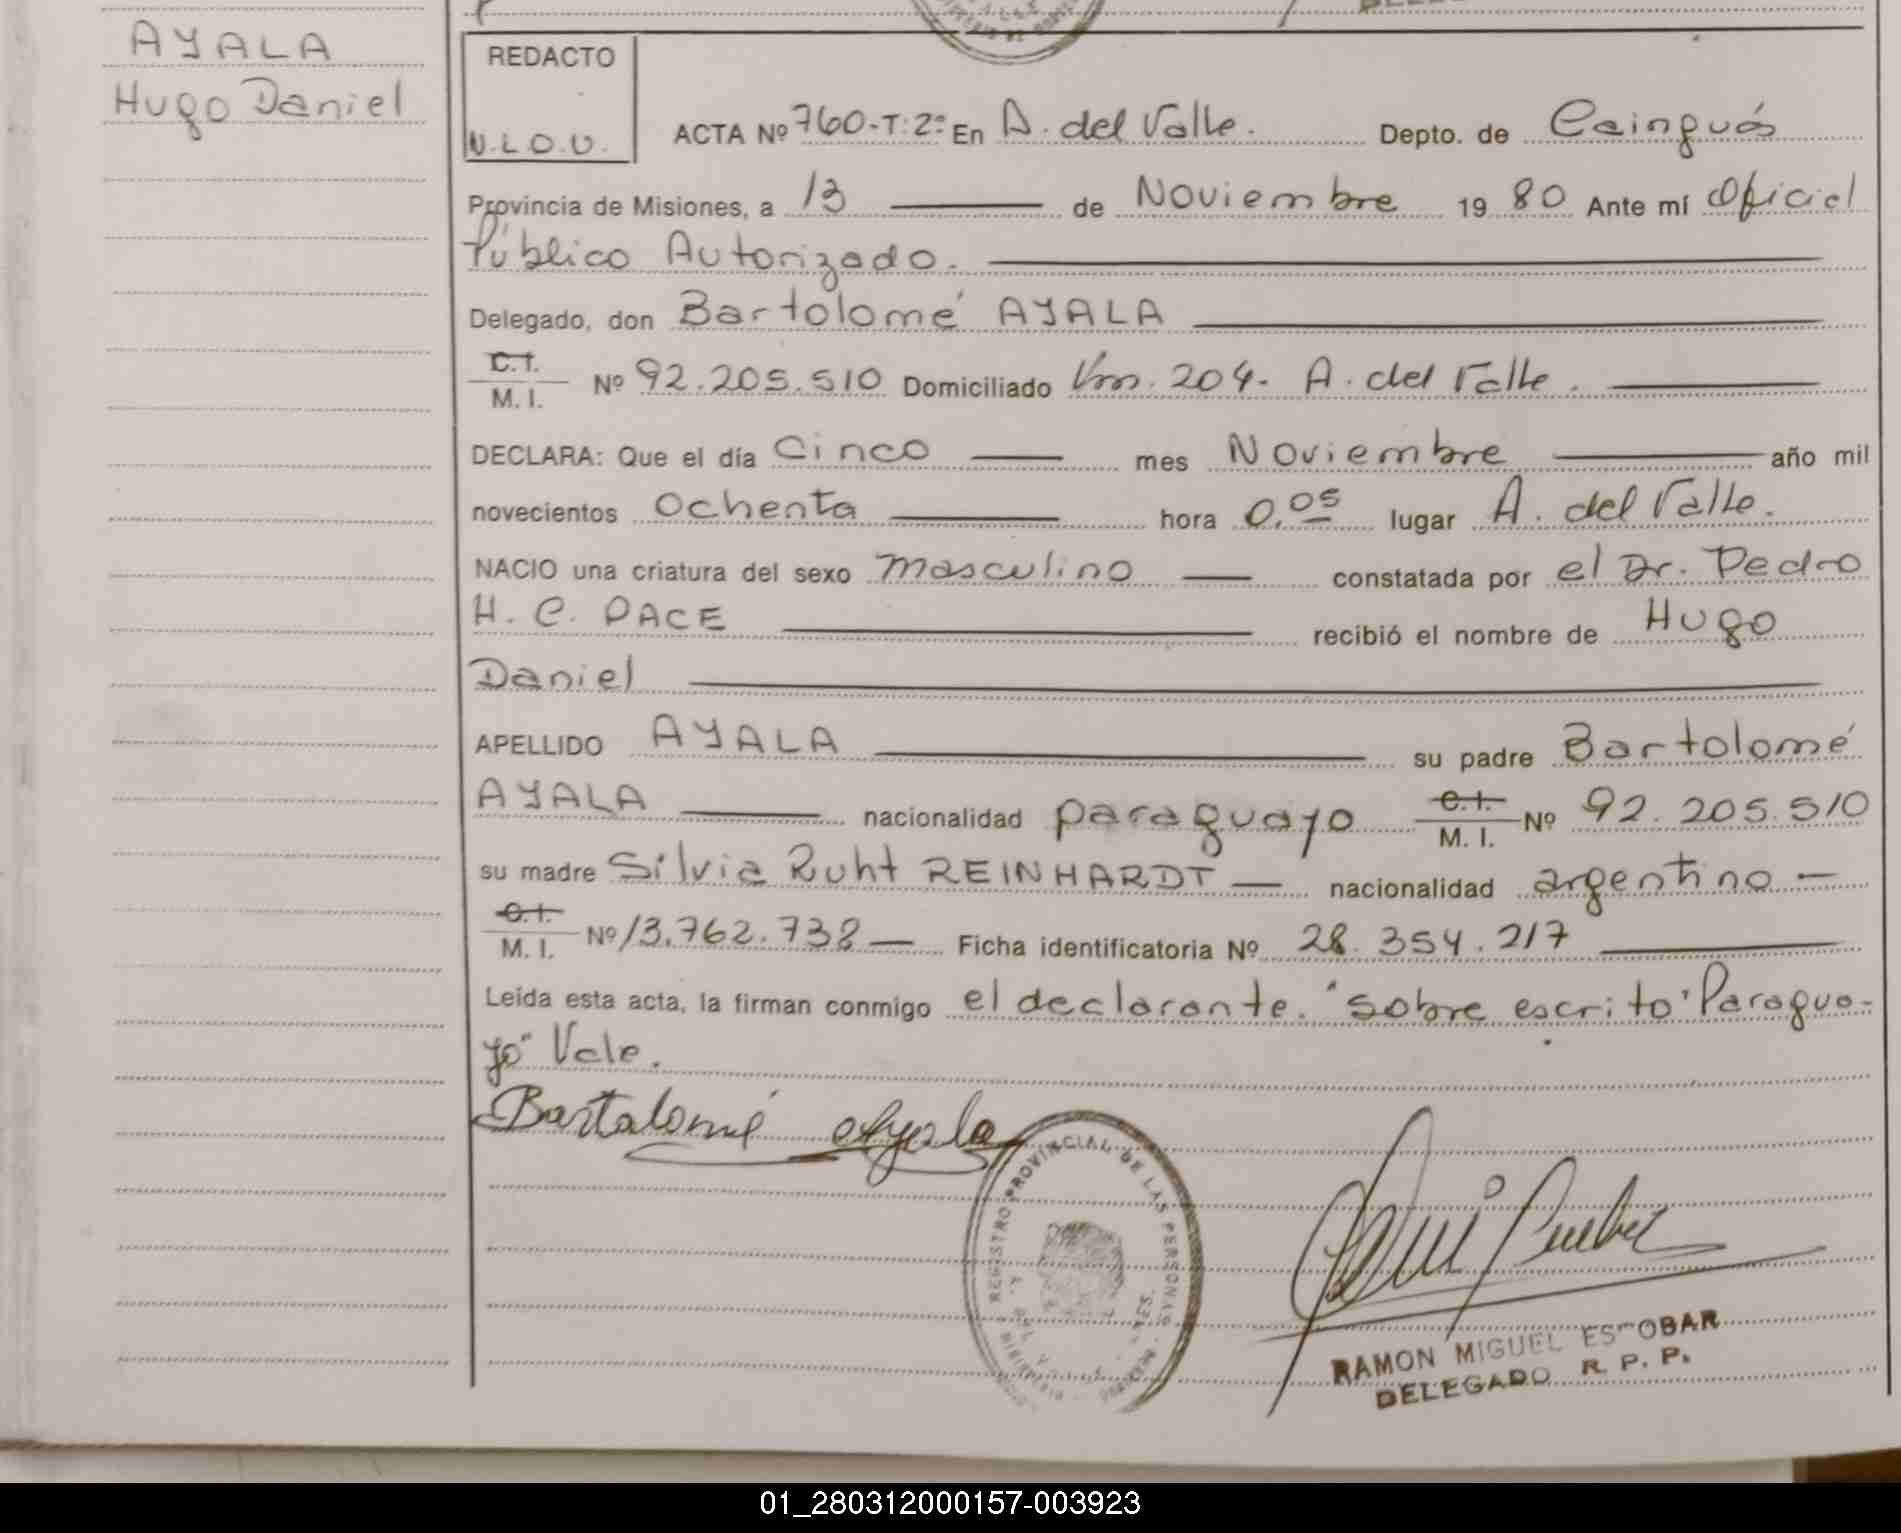 AYALA
Hugo Daniel
REDACTO
N.L.O.V.
ACTA Nº 760-T:2º En A. del Valle. Depto. de Cainguás
Provincia de Misiones, a 13 de Noviembre 19 80 Ante mí Oficial
Público Autorizado.
Delegado, don Bartolomé AYALA
C.I.
M. I. Nº 92.205.510 Domiciliado Km. 204. A. del Valle.
DECLARA: Que el día Cinco mes Noviembre año mil
novecientos Ochenta hora 0,05 lugar A. del Valle.
NACIO una criatura del sexo masculino constatada por el Dr. Pedro
H. C. PACE recibió el nombre de Hugo
Daniel
APELLIDO AYALA su padre Bartolomé
AYALA nacionalidad paraguayo C.I. M. I. Nº 92.205.510
su madre Silvia Ruht REINHARDT nacionalidad argentino
C.I.
M. I. Nº 13.762.738 Ficha identificatoria Nº 28.354.217
Leída esta acta, la firman conmigo el declarante. "sobre escrito" Paragua-
yo" Vale.
Bartolomé Ayala
REGISTRO PROVINCIAL DE LAS PERSONAS
RAMON MIGUEL ESCOBAR
DELEGADO R. P. P.
01_280312000157-003923